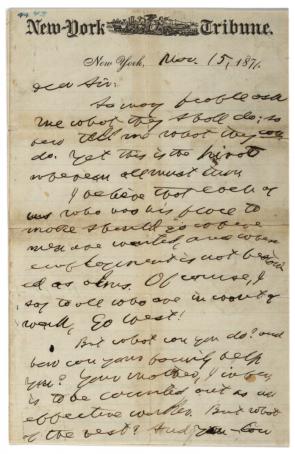 New-York Tribune.
New York, Nov. 15, 1871.
Dear Sir:
So many people ask
me what they shall do; so
few tell me what they can
do. Yet this is the pivot
wherein all must turn
I believe that each of
us who has his place to
make should go where
men are wanted, and where
employment is not bestow-
ed as alms. Of course, I
say to all who are in want of
work, Go West!
But what can you do? and
how can your family help
you? Your mother, I infer,
is to be counted out as an
effective worker. But what
of the rest? And you – Can